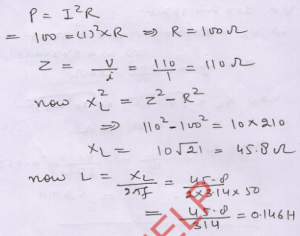 P = I²R
= 100 = (1)² × R ⇒ R = 100 Ω
Z = V/i = 110/1 = 110 Ω
now X_L² = Z² − R²
⇒ 110² − 100² = 10 × 210
X_L = 10√21 = 45.8 Ω
now L = X_L/2πf = 45.8/2×3.14×50
= 45.8/314 = 0.146 H
HELP